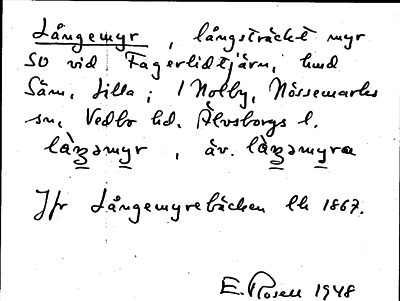 Långemyr, långsträckt myr
SO vid Fagerlidtjärn, hmd
Säm, Lilla; i Nolby, Nössemarks
sn, Vedbo hd. Älvsborgs l.
làŋəmyr, äv. làŋəmyra
Jfr Långemyrebäcken Ek 1867.
E. Rosell 1948